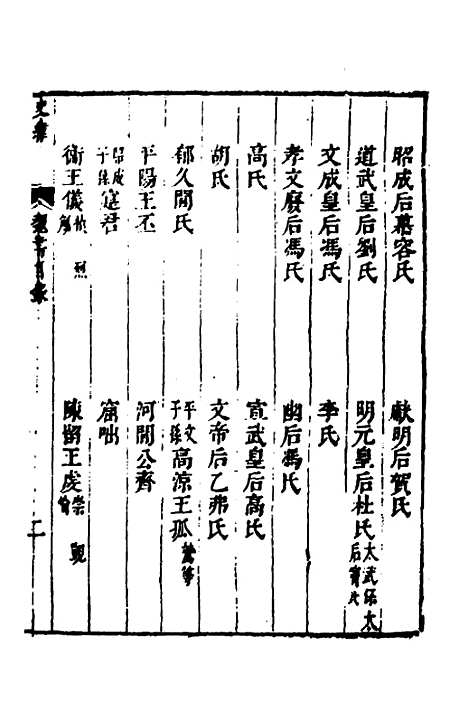 昭成后慕容氏 獻明后賀氏
道武皇后劉氏 明元皇后杜氏 太武保太后竇氏
文成皇后馮氏 李氏
孝文廢后馮氏 幽后馮氏
高氏 宣武皇后高氏
胡氏 文帝后乙弗氏
郁久閭氏 平文子孫高涼王孤
平陽王丕 河間公齊
昭成子孫寔君 窟咄
衛王儀 烈 陳留王虔 崇 覬
史纂
魏書目錄
二